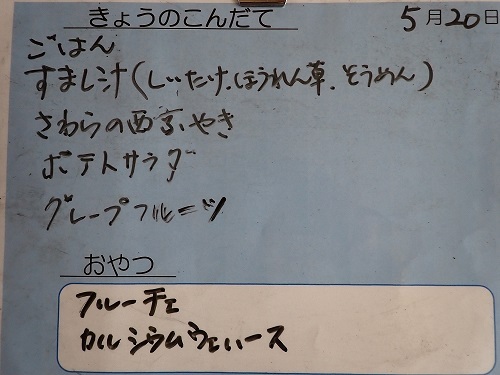 きょうのこんだて
5月20日
ごはん
すまし汁(しいたけ、ほうれん草、そうめん)
さわらの西京やき
ポテトサラダ
グレープフルーツ
おやつ
フルーチェ
カルシウムウェハース